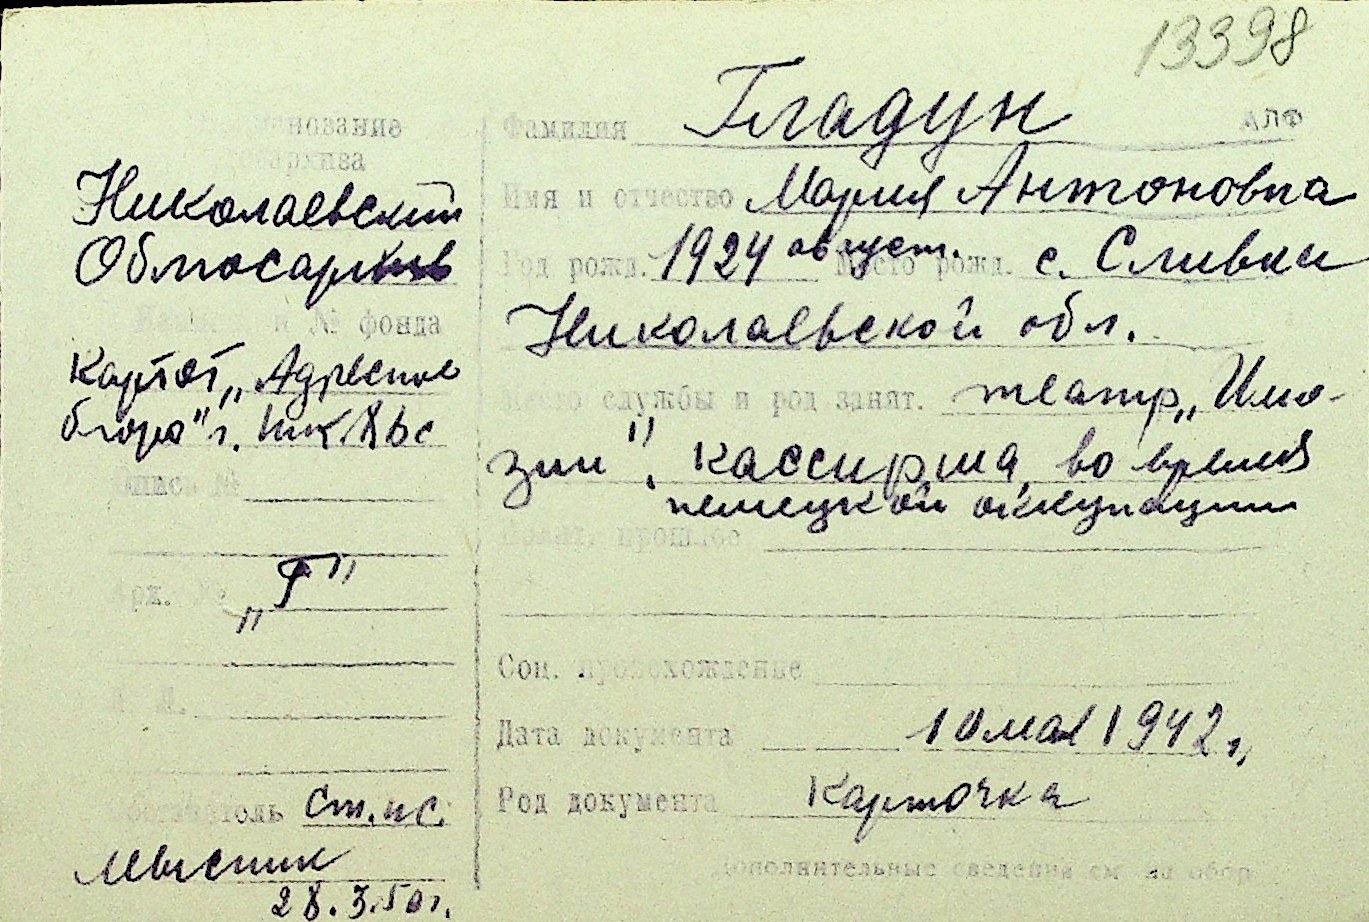 13398
АЛФ
Наименование
госархива
Николаевский
Облгосархив
Наимен. и № фонда
Картот. „Адресное
бюро" г.
Опись №
Арх. №
„Г"
Л. Л.
Составитель ст. нс.
Мысник
28.3.50 г.
Фамилия Гладун
Имя и отчество Мария Антоновна
Год рожд. 1924 август. Место рожд. с. Сливки
Николаевской обл.
Место службы и род занят. театр „Илю-
зии", кассирша во время
немецкой оккупации
Полит. прошлое
Соц. происхождение
Дата документа 10 мая 1942 г.,
Род документа Карточка
Дополнительные сведения см. на обор.